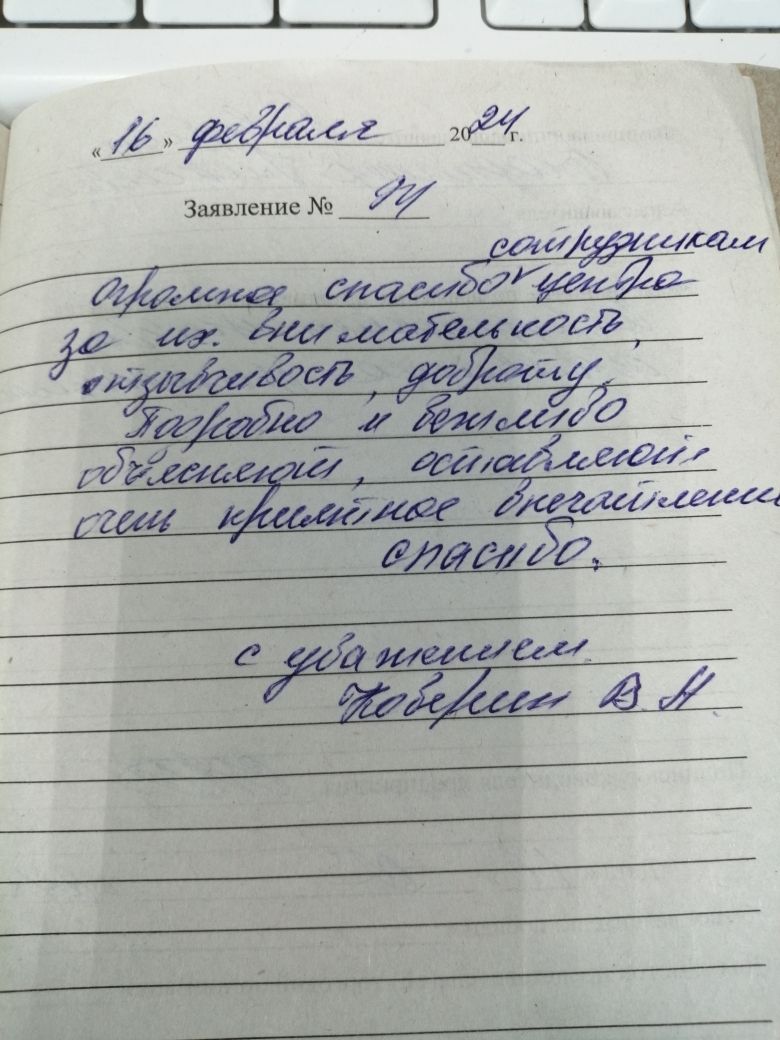 «16» февраля 2024 г.
Заявление №
сотрудникам
огромное спасибо центра
за их внимательность,
отзывчивость, доброту.
Подробно и вежливо
объясняют, оставляют
очень приятное впечатление
спасибо.
с уважением
В. Н.